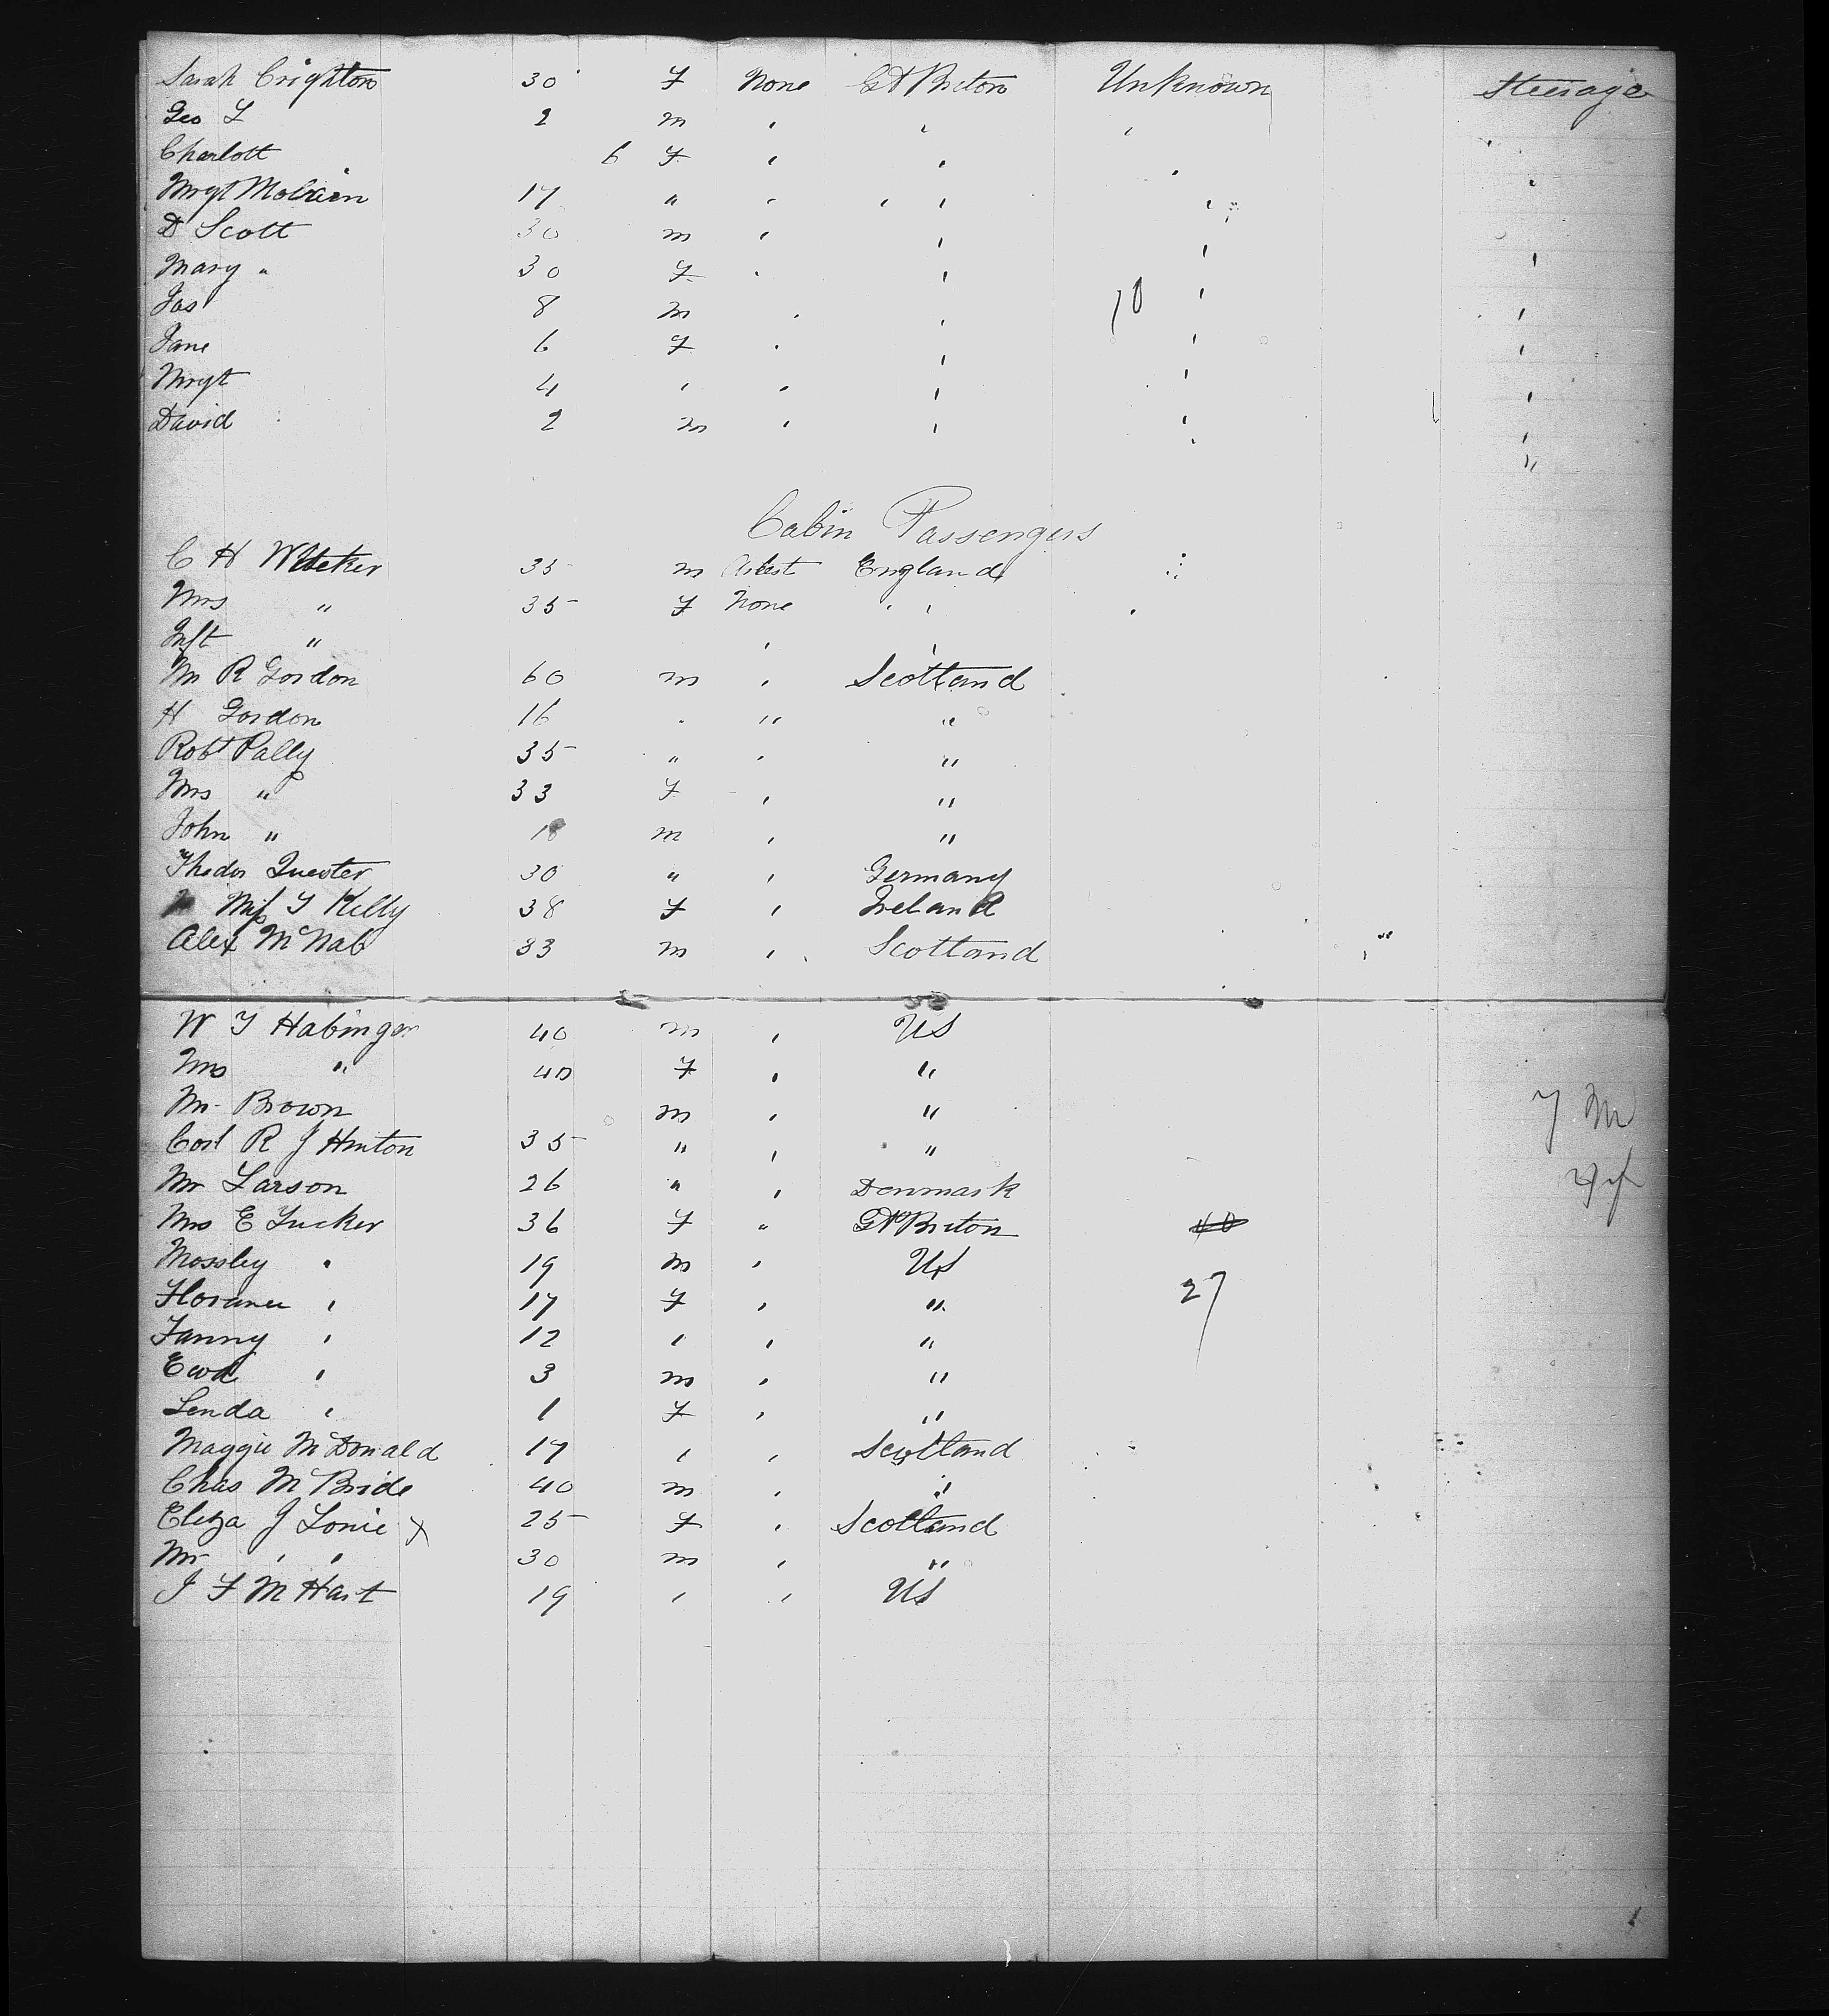 Sarah Crighton 30 F None Gt Briton Unknown Steerage
Geo L 2 m , , ,
Charlott 6 F , , , ,
Mrgt 17 " , , , , ,
D Scott 30 m , , ,
Mary " 30 F , , , ,
Jas 8 m , , 10 , ,
Jane 6 F , , , ,
Mrgt 4 , , , , ,
David 2 m , , , ,
Cabin Passengers
C H 35 m Artest England
Mrs " 35 F None , ,
Inft " , ,
Mr R Gordon 60 m , Scottand
H Gordon 16 , " "
Robt Pally 35 " , "
Mrs " 33 F , "
John " 18 m , "
Theder 30 " , Germany
Miss T Kelly 38 F , Ireland
Alex McNab 33 m , Scottand
W T Habinger 40 m , US
Mrs " 40 F , "
Mr Brown m , " 7 M
R J Hinton 35 " , "
Mr Larson 26 " , Denmark
Mrs E Tucker 36 F " Gt Briton 40
Mossley " 19 m , US
Florance , 17 F , " 27
Fanny , 12 , , "
Ewd , 3 m , "
Lenda , 1 F , "
Maggie McDonald 17 , , Scottand
Chas McBride 40 m , "
Eleza J Lonie x 25 F , Scottand
Mr , , 30 m , "
J F M Hart 19 , , US